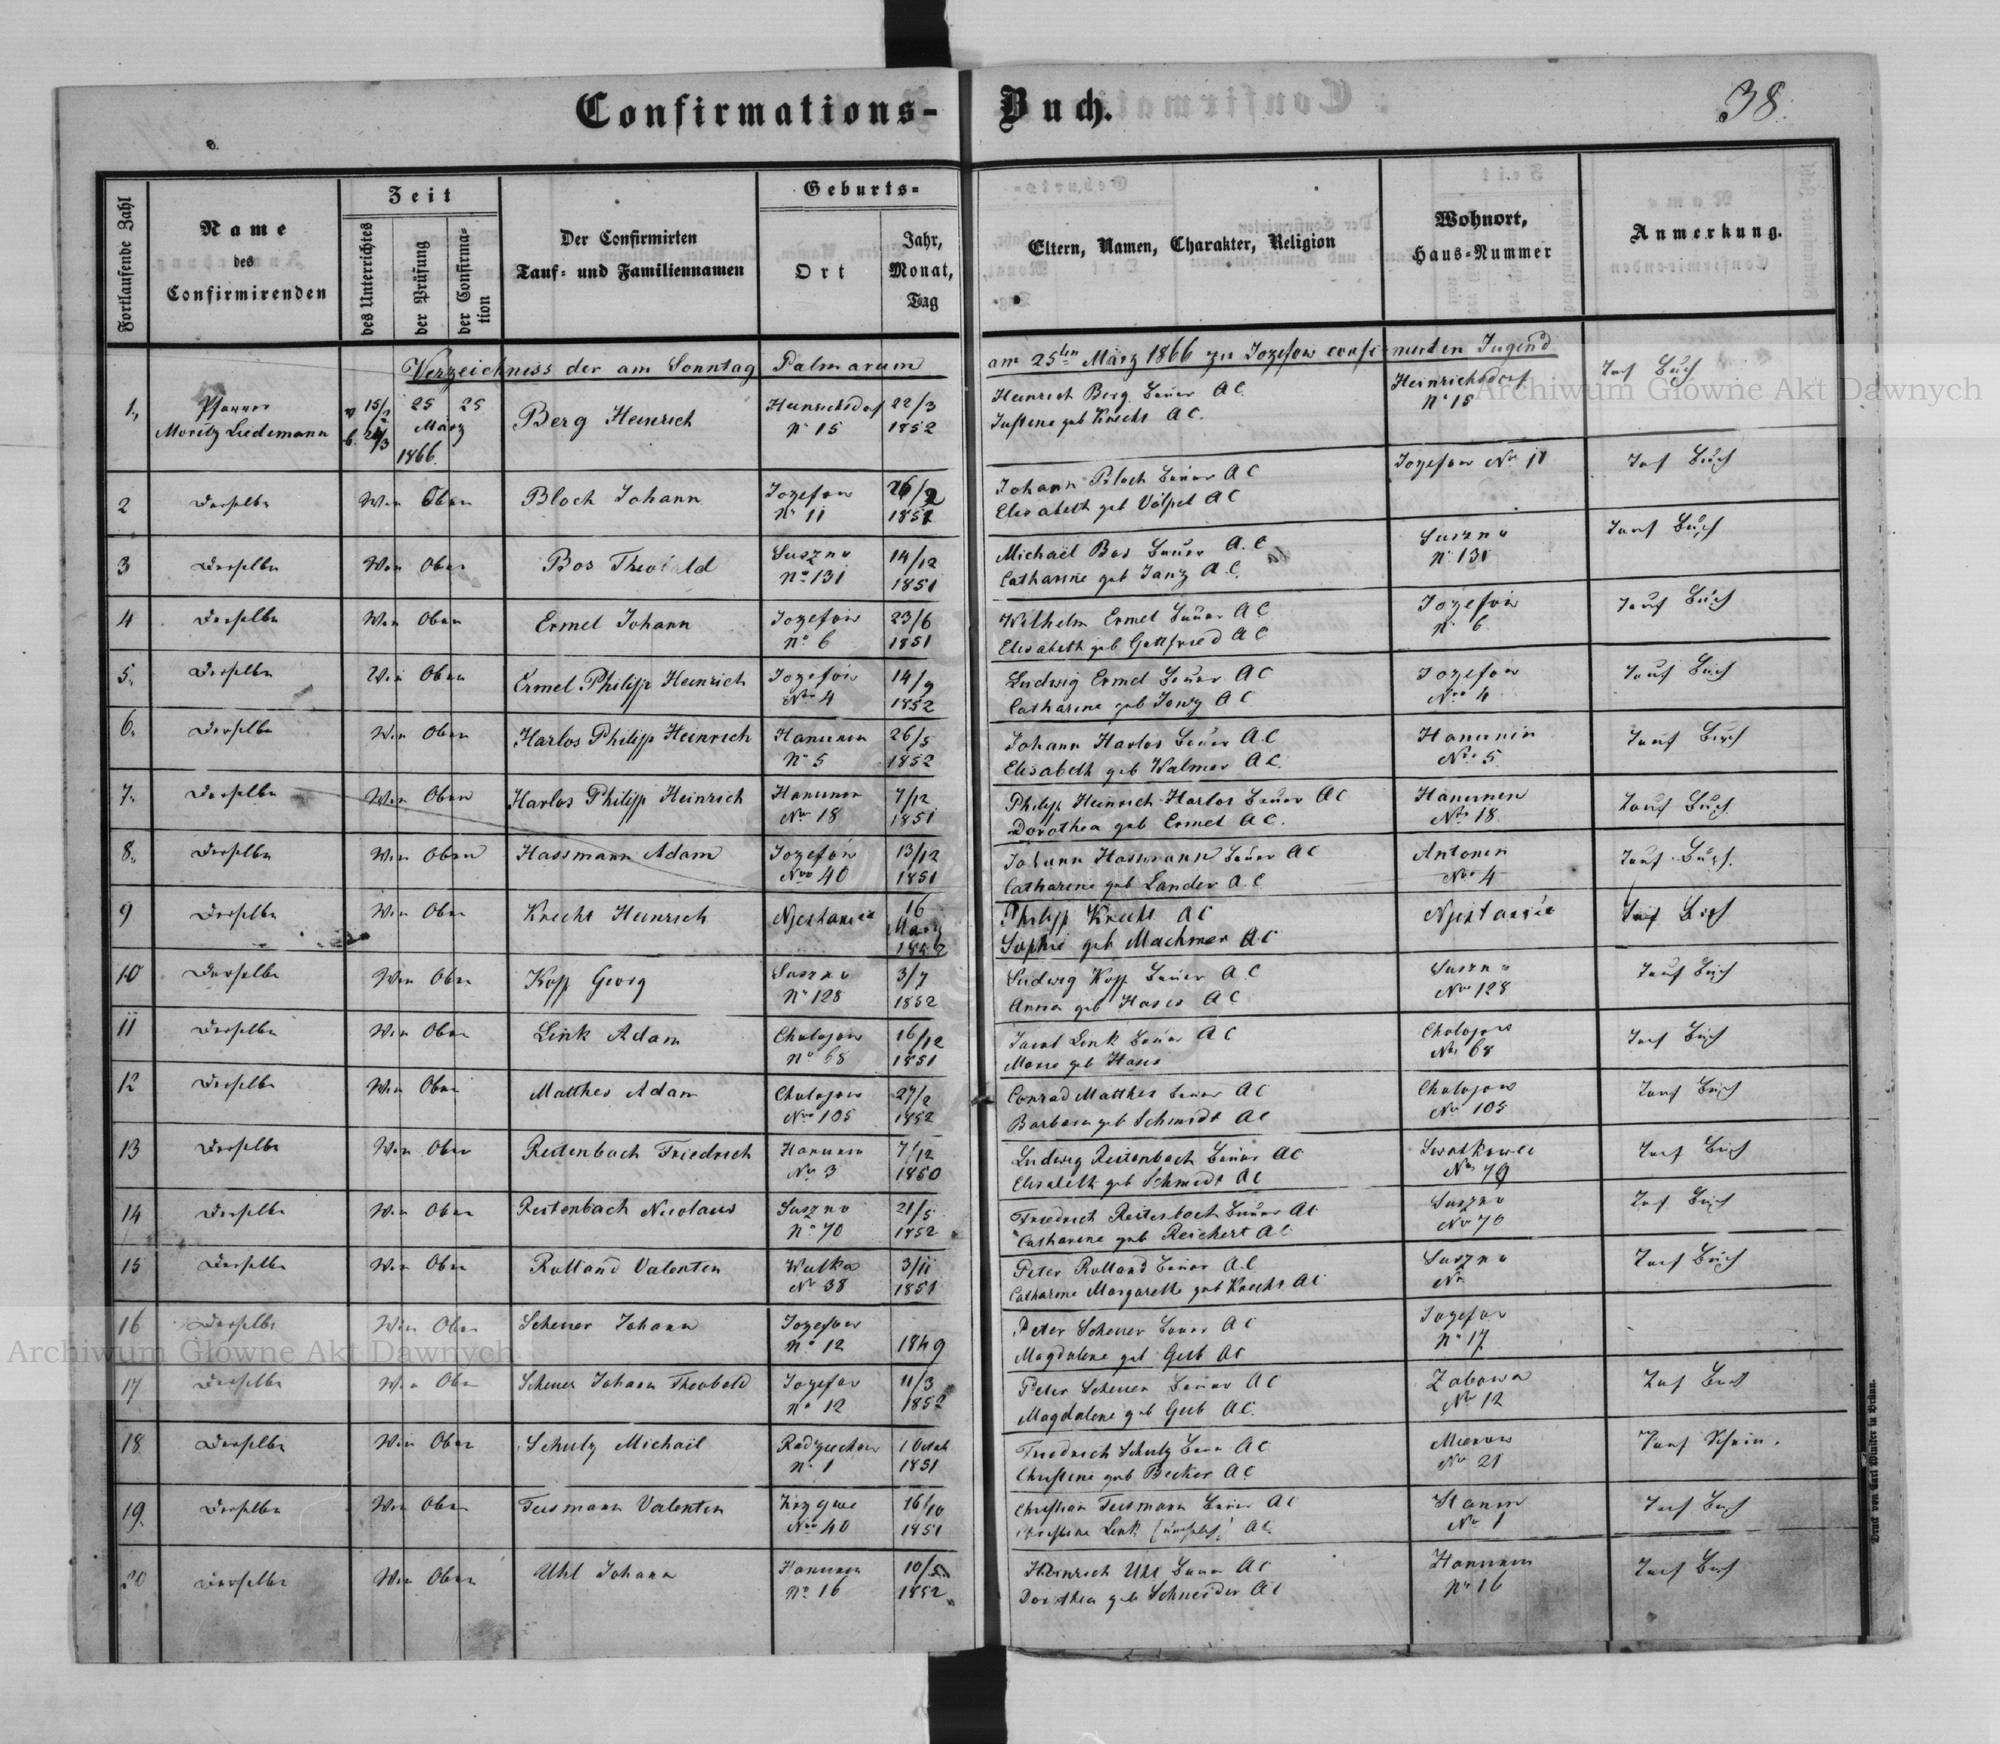 Confirmations-Buch.
38.
Fortlaufende Zahl
Name
des
Confirmirenden
Zeit
des Unterrichtes
der Prüfung
der Confirma-
tion
Der Confirmirten
Tauf- und Familiennamen
Geburts-
Ort
Jahr,
Monat,
Tag
Eltern, Namen, Charakter, Religion
Wohnort,
Haus-Nummer
Anmerkung.
Verzeichniss der am Sonntag Palmarum am 25ten März 1866 zu Jozefow confirmirten Jugend
1. Pfarrer 15/2 25 25 Berg Heinrich Heinrichsdorf 22/3 Heinrich Berg Bauer A C Heinrichsdorf Tauf Buch
Moritz Liedemann März N 15 1852 Justine geb Knecht A C. N 15
1866.
2 Derselbe Wie Oben Bloch Johann Jozefow Johann Bloch Bauer A C Jozefow No 11 Tauf Buch
N 11 Elisabeth geb Völpel A C
3 Derselbe Wie Oben Bos Theobald Suszno 14/12 Michael Bos Bauer A. C Suszno Tauf Buch
No 131 1851 Catharine geb Janz A. C. N 131
4 Derselbe Wie Oben Ermel Johann Jozefow 23/6 Wilhelm Ermel Bauer A C Jozefow Tauf Buch
No 6 1851 Elisabeth geb Gottfried A C N 6
5. Derselbe Wie Oben Ermel Philipp Heinrich Jozefow 14/9 Ludwig Ermel Bauer A C Jozefow Tauf Buch
Nro 4 1852 Catharine geb A C Nro 4
6. Derselbe Wie Oben Harlos Philipp Heinrich Hanunin 26/5 Johann Harlos Bauer A C Hanunin Tauf Buch
N 5 1852 Elisabeth geb Walmer A C. No 5
7. Derselbe Wie Oben Harlos Philipp Heinrich Hanunin 7/12 Philipp Heinrich Harlos Bauer A C Hanunin Tauf Buch
No 18 1851 Dorothea geb Ermel A C. No 18
8. Derselbe Wie Oben Hassmann Adam Jozefow 13/12 Johann Hassmann Bauer A C Antonin Tauf Buch.
Nro 40 1851 Catharine geb Lander A. C No 4
9 Derselbe Wie Oben Knecht Heinrich 16 Philipp Knecht A C Tauf Buch
März
1852 Sophie geb Machmer A C
10 Derselbe Wie Oben Kopp Georg Suszno 3/7 Ludwig Kopp Bauer A. C Suszno Tauf Buch
N 128 1852 Anna geb A C No 128
11 Derselbe Wie Oben Link Adam Cholojow 16/12 Jacob Link Bauer A C Cholojow Tauf Buch
No 68 1851 geb No 68
12 Derselbe Wie Oben Matthes Adam Cholojow 27/2 Conrad Matthes Bauer A C Cholojow Tauf Buch
Nro 105 1852 Barbara geb Schmidt A C No 105
13 Derselbe Wie Oben Reitenbach Friedrich Hanunin 7/12 Ludwig Reitenbach Bauer A C Tauf Buch
No 3 1850 Elisabeth geb Schmidt A C
14 Derselbe Wie Oben Reitenbach Nicolaus Suszno 21/5 Friedrich Reitenbach Bauer A C Suszno Tauf Buch
No 70 1852 Catharine geb Reichert A C No 70
15 Derselbe Wie Oben Rolland Valentin Wulka 3/11 Peter Rolland Bauer A. C Suszno Tauf Buch
No 38 1851 Catharine Margareth geb Knecht A C No
16 Derselbe Wie Oben Scheuer Johann Jozefow Peter Scheuer Bauer A C Jozefow
No 12 1849 Magdalene geb Geib A C N 17
17 Derselbe Wie Oben Scheuer Johann Theobald Jozefow 11/3 Peter Scheuer Bauer A C Zabawa Tauf Buch
No 12 1852 Magdalene geb Geib A C. No 12
18 Derselbe Wie Oben Schulz Michael Radziechow 1 Friedrich Schulz A C Mierow Tauf Schein.
N 1 1851 Christine geb Becker A C No 21
19. Derselbe Wie Oben Teismann Valentin 16/10 Christian Teismann Bauer A C Stanin Tauf Buch
Nro 40 1851 Christine Link A C. No 1
20 Derselbe Wie Oben Uhl Johann Hanunin Heinrich Uhl Bauer A C Hanunin Tauf Buch
No 16 1852. Dorothea geb Schneider A C No 16
Druck von Carl Winiker in Brünn.
Archiwum Główne Akt Dawnych
Archiwum Główne Akt Dawnych